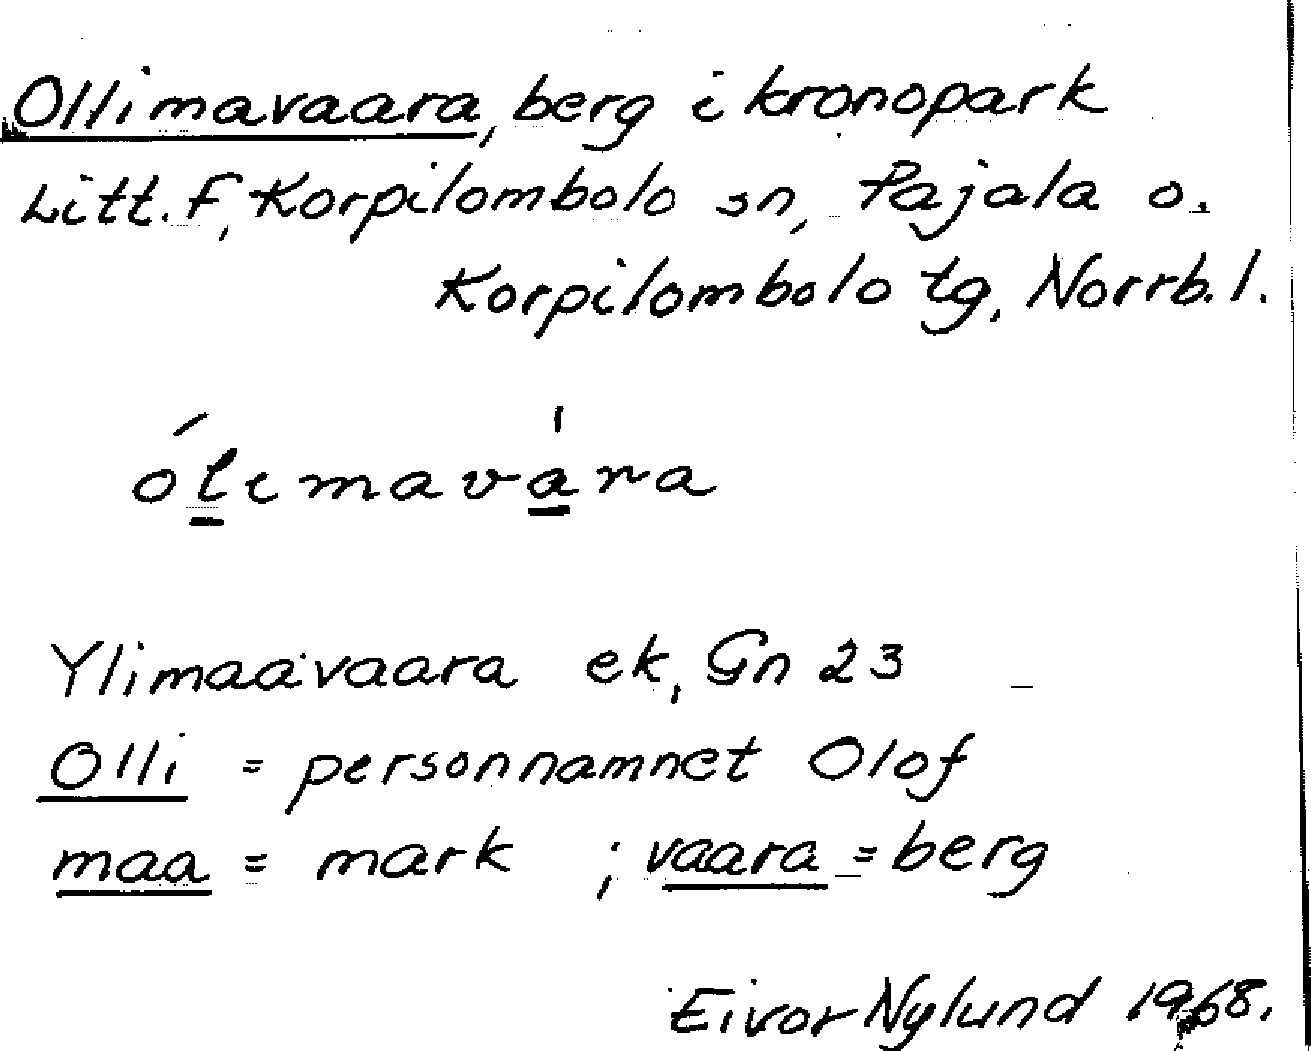 Ollimavaara, berg i kronopark
Litt. F, Korpilombolo sn, Pajala o.
Korpilombolo tg, Norrb. l.
ólimavara
Ylimaavaara ek, Gn 23
Olli = personnamnet Olof
maa = mark ; vaara = berg
Eivor Nylund 1968.